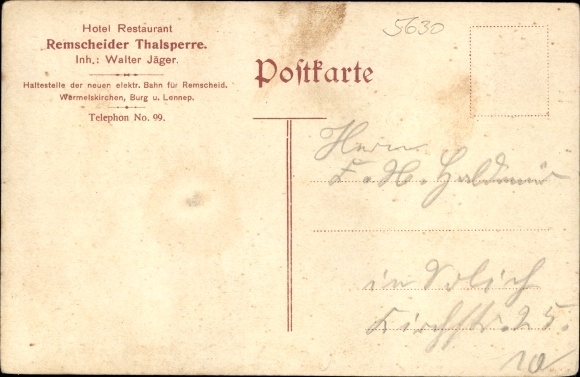 Hotel Restaurant
Remscheider Thalsperre.
Inh.: Walter Jäger.
Haltestelle der neuen elektr. Bahn für Remscheid.
Wermelskirchen, Burg u. Lennep.
Telephon No. 99.
5630
Postkarte
Herrn
in
Kirchstr. 25.